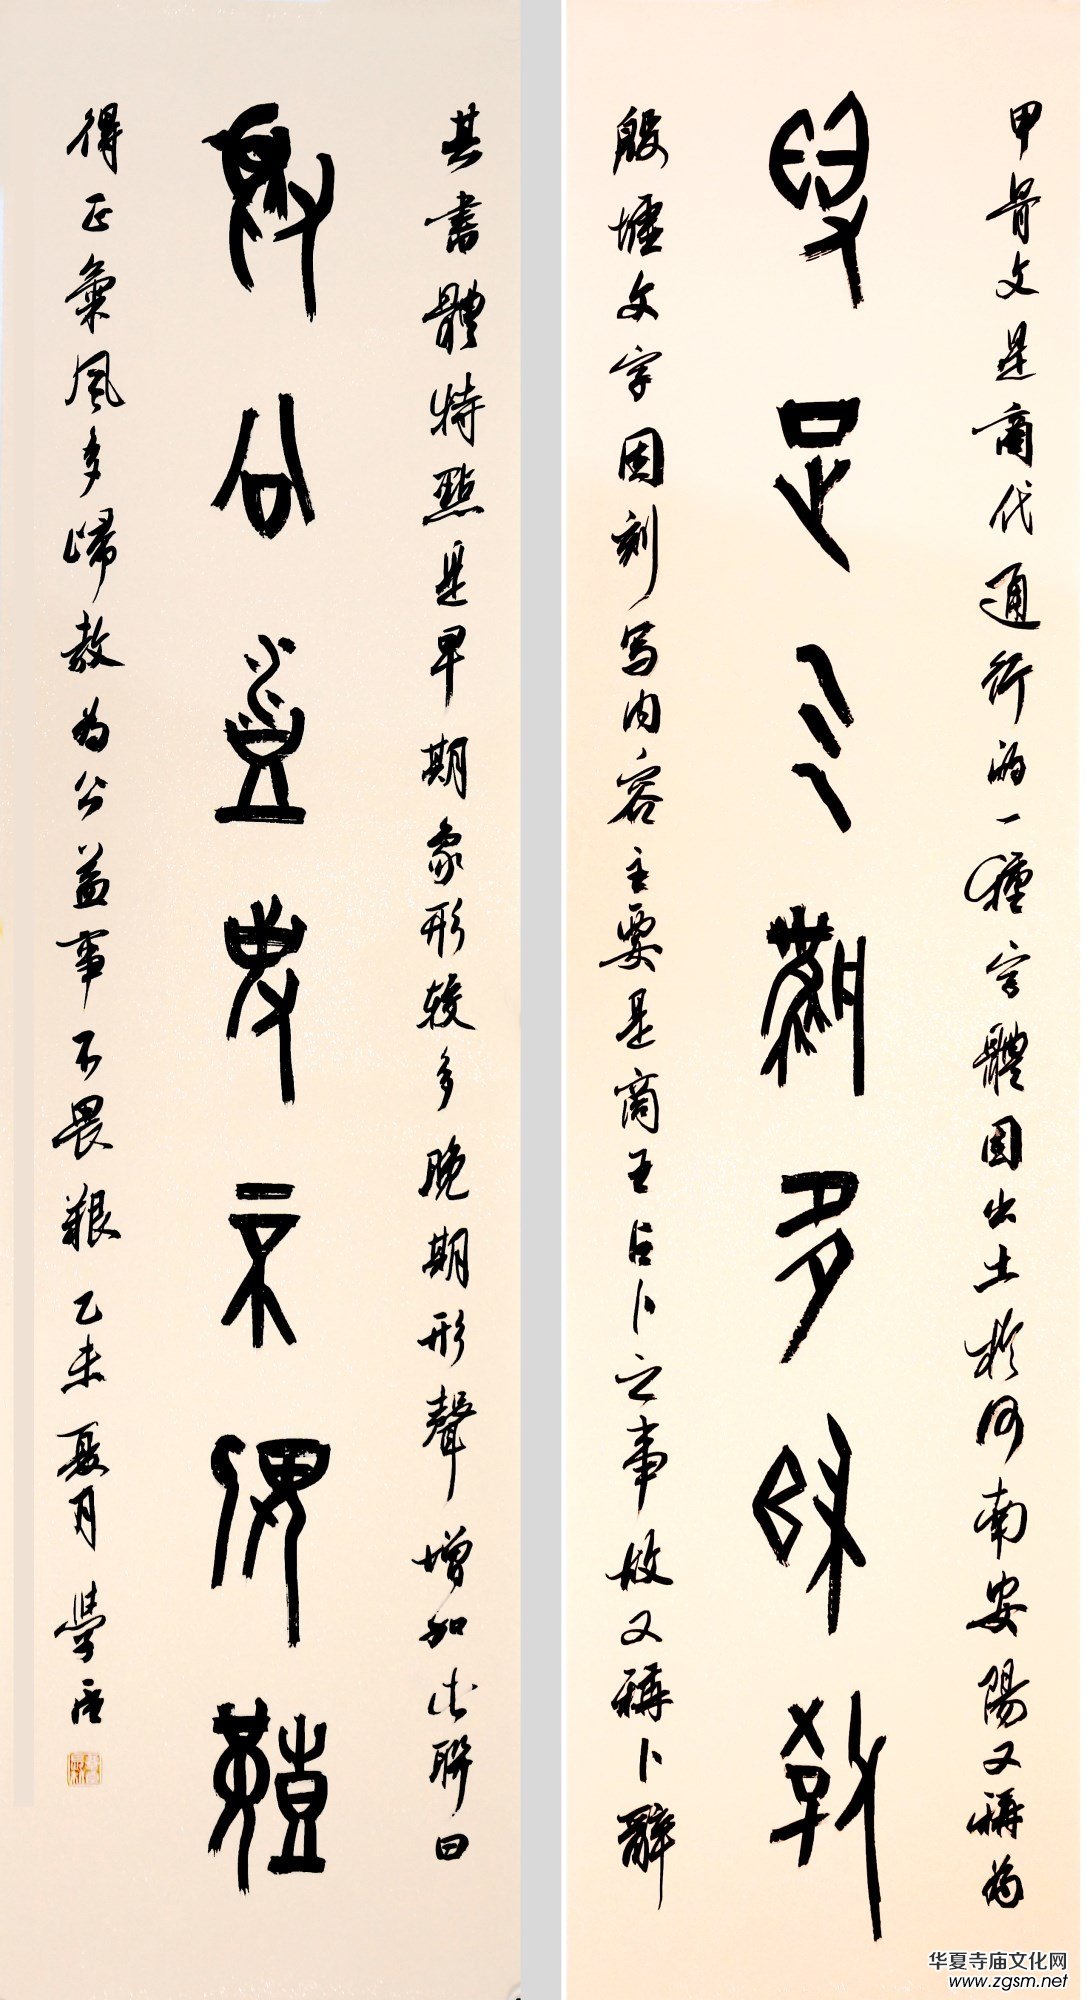 甲骨文是商代通行的一種字體因出土於河南安陽又稱為
得正气風多歸教
殷墟文字因刻写内容主要是商王占卜之事故又稱卜辭
其書體特點是早期象形較多晚期形聲增加此聯曰
為公益事不畏艱
得正氣風多歸教為公益事不畏艱 乙未夏月 學
华夏寺庙文化网
www.zgsm.net